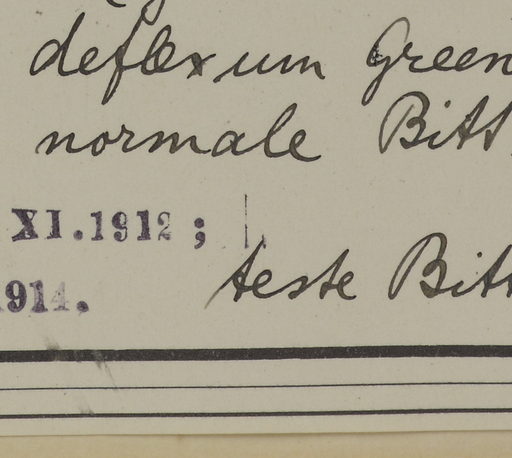 deflexum Green
normale Bitt.
XI.1912;
1914.
teste Bitt